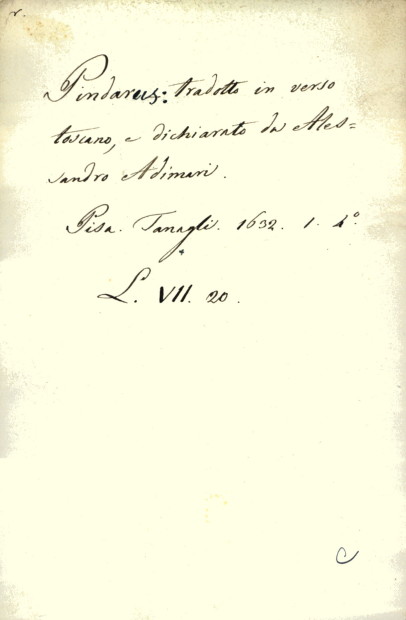 r.
Pindarus: tradotto in verso
toscano, e dichiarato da Ales=
sandro Adimari.
Pisa. Tanagli. 1632. 1. 4º.
*
L. VII. 20.
C